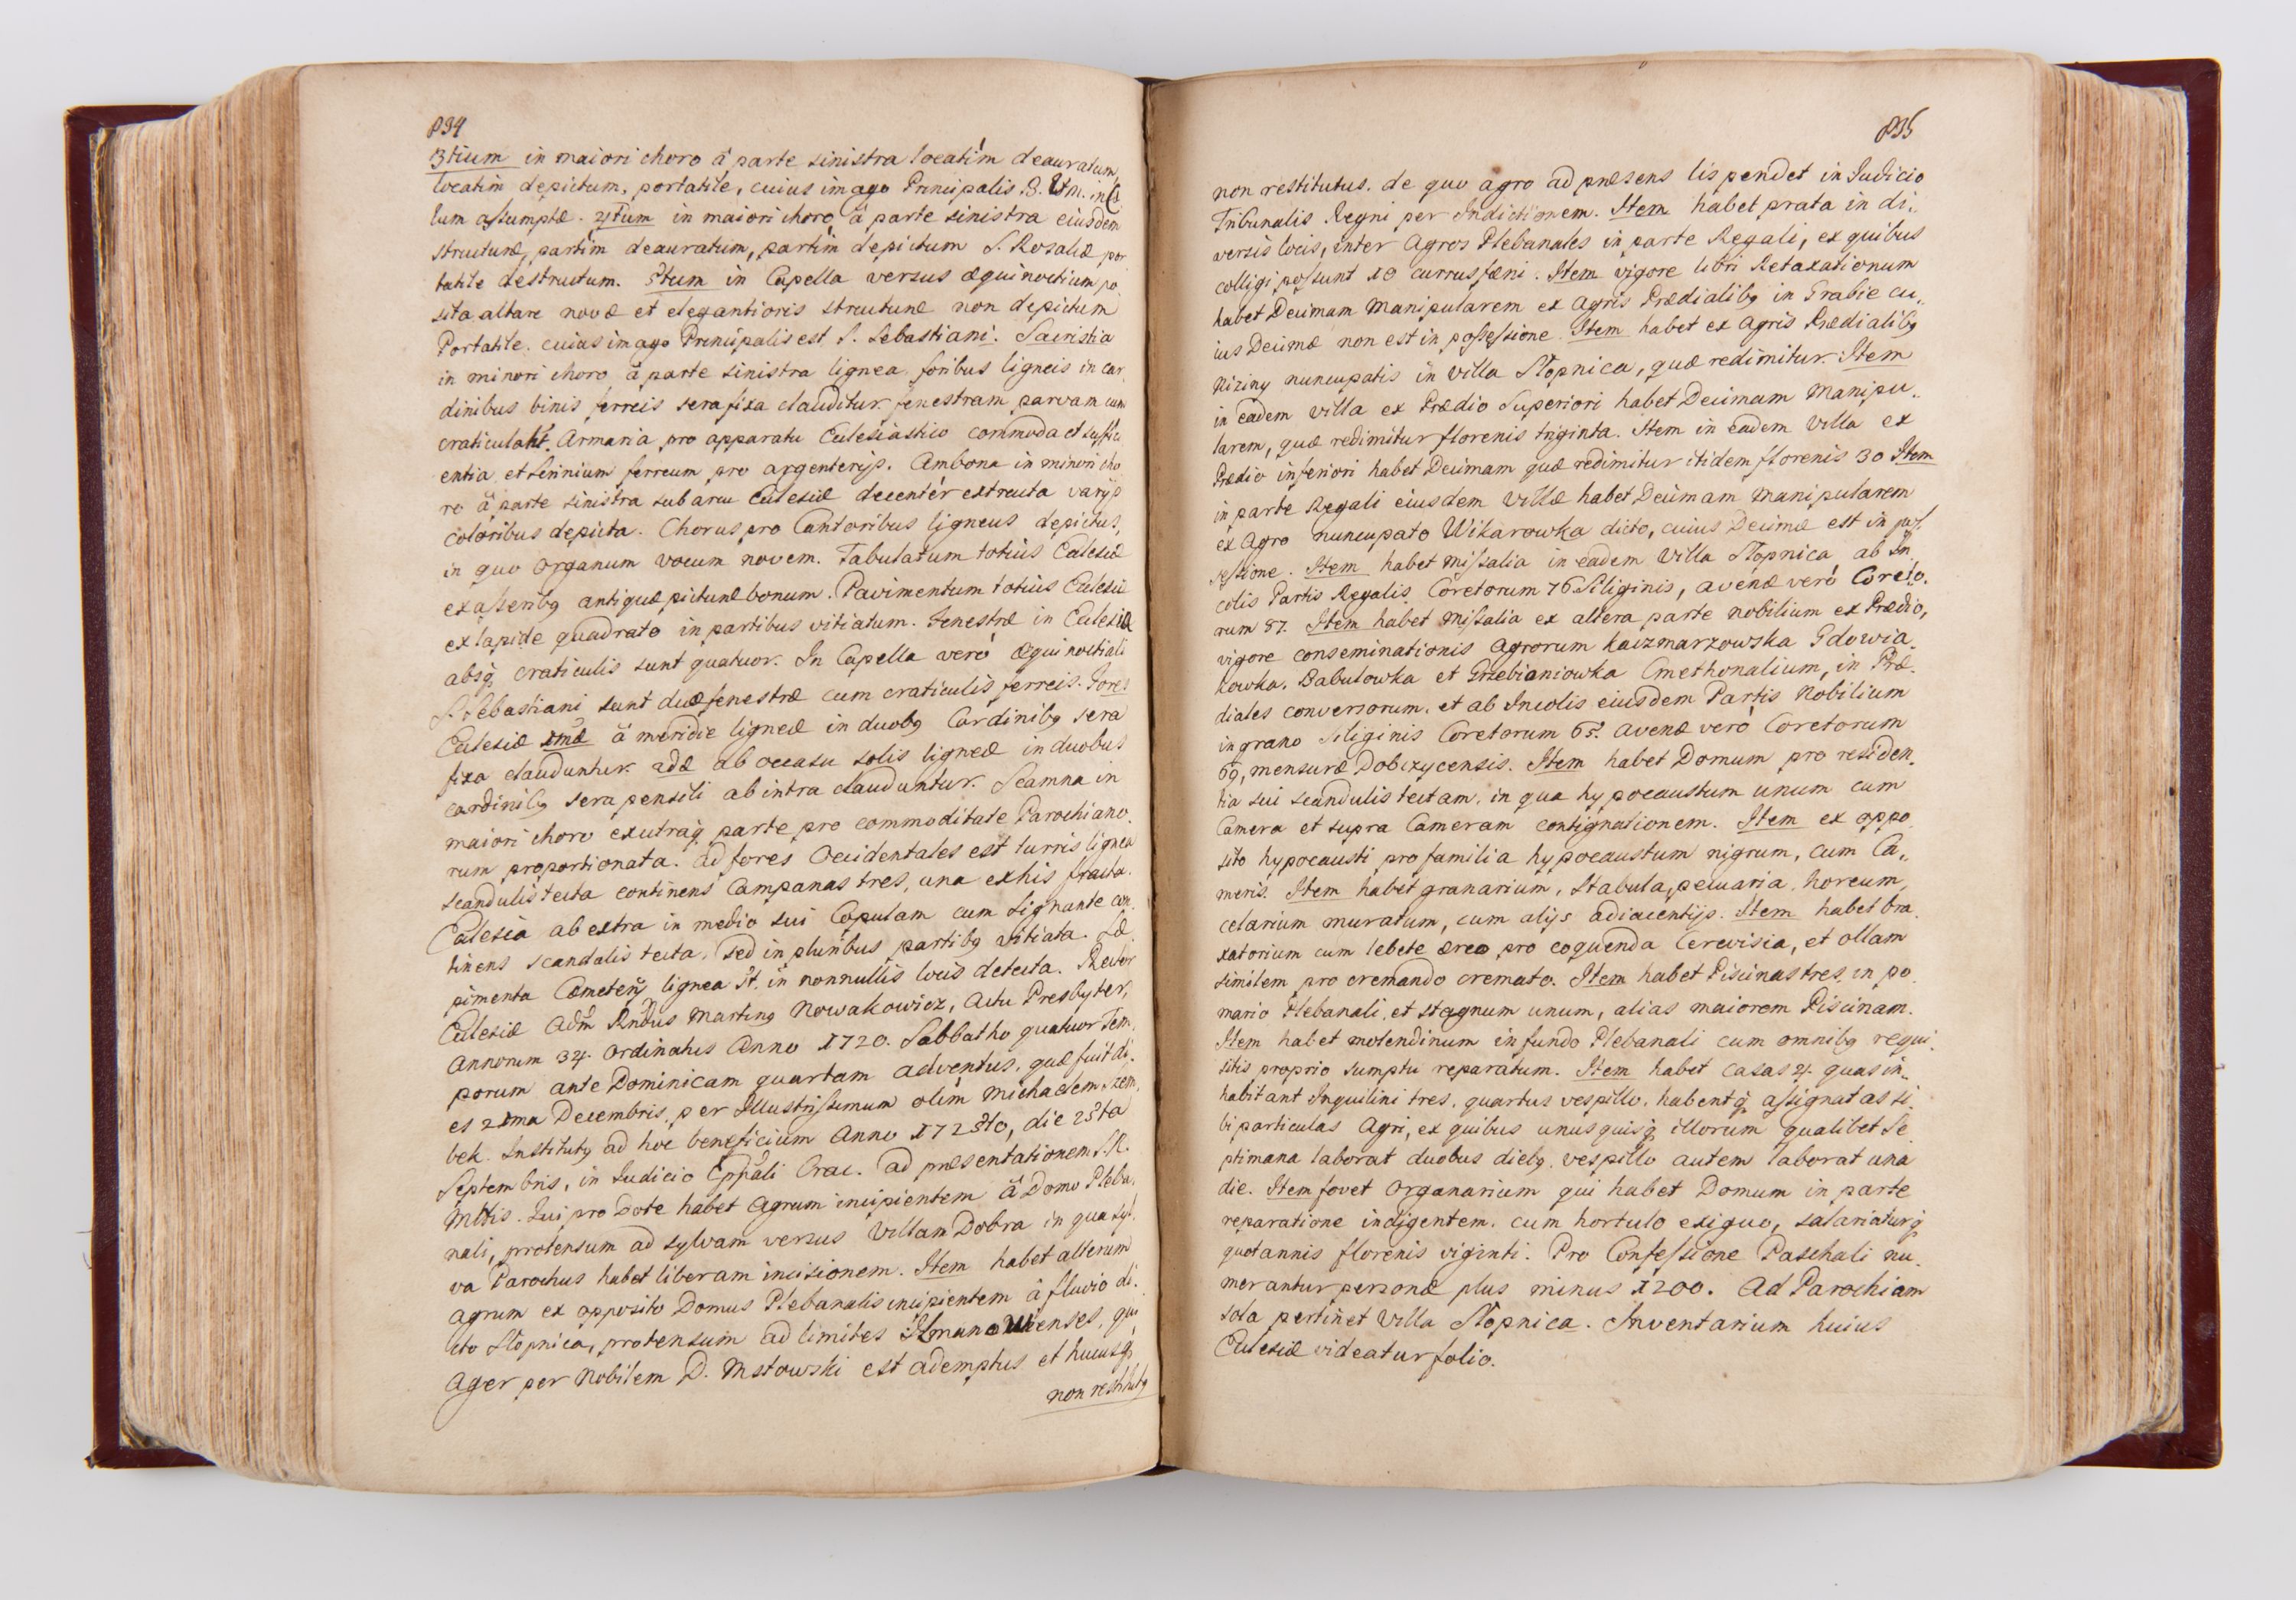 834
3tium in maiori choro â parte sinistra locatim deauratum,
locatim depictum, portatile, cuius imago Principalis B. V. M. in Cæ
lum assumptæ. 4tum in maiori choro â parte sinistra eiusdem
structuræ, partim deauratum, partim depictum S. Rosaliæ por
tatile destructum. 5tum in Capella versus æquinoctium po
sita altare novæ et elegantioris structuræ non depictum
Portatile. cuius imago Principalis est S. Sebastiani. Sacristia
in minori choro â parte sinistra lignea foribus ligneis in car
dinibus binis ferreis sera fixa clauditur. fenestram parvam cum
craticula ht. Armaria pro apparatu Ecclesiastico commoda et suffici
entia et scrinium ferreum pro argenterijs. Ambona in minori cho
ro â parte sinistra sub arcu Ecclesiæ decentér extructa varijs
coloribus depicta. Chorus pro Cantoribus ligneus depictus,
in quo Organum vocum novem. Tabulatum totius Ecclesiæ
ex asseribq antiquæ picturæ bonum. Pavimentum totius Ecclesiæ
ex lapide quadrato in partibus vitiatum. Fenestræ in Ecclesiæ
absq craticulis sunt quatuor. In Capella veró Æquinoctiali
S. Sebastiani sunt duæ fenestræ cum craticulis ferreis. Fores
Ecclesiæ 1mæ â meridie ligneæ in duobq Cardinibq sera
fixa clauduntur. 2dæ ab occasu solis ligneæ in duobus
cardinibq sera pensili ab intra clauduntur. Scamna in
maiori choro ex utraq parte pro commoditate Parochiano
rum proportionata. Ad fores Occidentales est turris lignea
scandulis tecta continens Campanas tres, una ex his fracta.
Ecclesia ab extra in medio sui Copulam cum signante con
tinens scandalis tecta, sed in pluribus partibq vitiata. Sæ
pimenta Cæmeterij lignea st. in nonnullis locis detecta. Rector
Ecclesiæ Adm Rndus Martinq Nowakowicz, Actu Presbyter,
Annorum 34. Ordinatus Anno 1720. Sabbatho quatuor Tem
porum ante Dominicam quartam Adventus, quæ fuit di
es 21ma Decembris, per Illustrissimum olim Michaelem Szem
bek. Institutq ad hoc beneficium Anno 1725to, die 25ta
Septembris, in Iudicio Eppali Crac. ad præsentationem S. R.
Mttis. Qui pro Dote habet Agrum incipientem â Domo Pleba
nali, protensum ad sylvam versus Villam Dobra in qua syl
va Parochus habet liberam incisionem. Item habet alterum
agrum ex opposito Domus Plebanalis incipientem â fluvio di
cto Słopnica, protensum ad limites Limanowienses, qui
Ager per Nobilem D. Mstowski est ademptus et hucusq
non restitutq
835
non restitutus. de quo agro ad præsens lis pendet in Judicio
Tribunalis Regni per Indictionem. Item habet prata in di„
versis locis, inter Agros Plebanales in parte Regali, ex quibus
colligi possunt 10 currus fæni. Item vigore libri Retaxationum
habet Decimam Manipularem ex Agris Prædialibq in Grabie cu„
ius Decimæ non est in possessione. Item habet ex Agris Prædialibq
Niziny nuncupatis in Villa Słopnica, quæ redimitur. Item
in eadem villa ex Prædio Superiori habet Decimam Manipu„
larem, quæ redimitur florenis triginta. Item in eadem Villa ex
Prædio inferiori habet Decimam quæ redimitur itidem florenis 30 Item
in parte Regali eiusdem Villæ habet Decimam Manipularem
ex Agro nuncupato Wikarowka dicto, cuius Decimæ est in pos
sessione. Item habet missalia in eadem Villa Słopnica ab In
colis Partis Regalis Coretorum 76 Siliginis, avenæ veró Coreto
rum 87. Item habet Missalia ex altera parte nobilium ex Prædio,
vigore conseminationis Agrorum Kaczmarzowska Gdowia
kowka, Babulowka et Grzebieniowka Cmethonalium, in Præ
diales conversorum, et ab Incolis eiusdem Partis Nobilium
in grano Siliginis Coretorum 65. avenæ veró Coretorum
69, mensuræ Dobczycensis. Item habet Domum pro residen
tia sui scandulis tectam, in qua hypocaustum unum cum
Camera et supra Cameram contignationem. Item ex oppo
sito hypocausti pro familia hypocaustum nigrum, cum Ca„
meris. Item habet granarium, Stabula, pecuaria, horeum,
celarium muratum, cum alijs adiacentijs. Item habet bra
xatorium cum lebete æreo pro coquenda Cerevisia, et ollam
similem pro cremando cremato. Item habet Piscinas tres in po
mario Plebanali, et stagnum unum, alias maiorem Piscinam.
Item habet molendinum in fundo Plebanali cum omnibq requi
sitis proprio sumptu reparatum. Item habet casas 4. quas in„
habitant Inquilini tres, quartus vespillo, habentq assignatas si
bi particulas Agri, ex quibus unusquisq illorum qualibet Se
ptimana laborat duobus diebq, vespillo autem laborat una
die. Item fovet Organarium qui habet Domum in parte
reparatione indigentem, cum hortulo exiguo, salariaturq
quotannis florenis viginti. Pro Confessione Paschali nu
merantur personæ plus minus 1200. Ad Parochiam
sola pertinet Villa Słopnica. Inventarium huius
Ecclesiæ videatur folio.